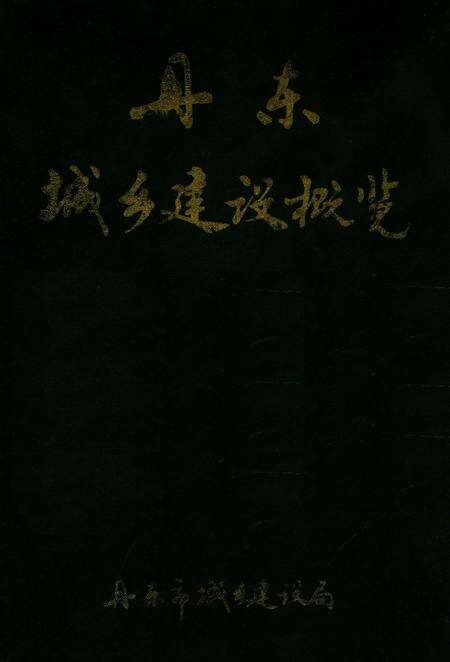 丹东
城乡建设概览
丹东市城乡建设局